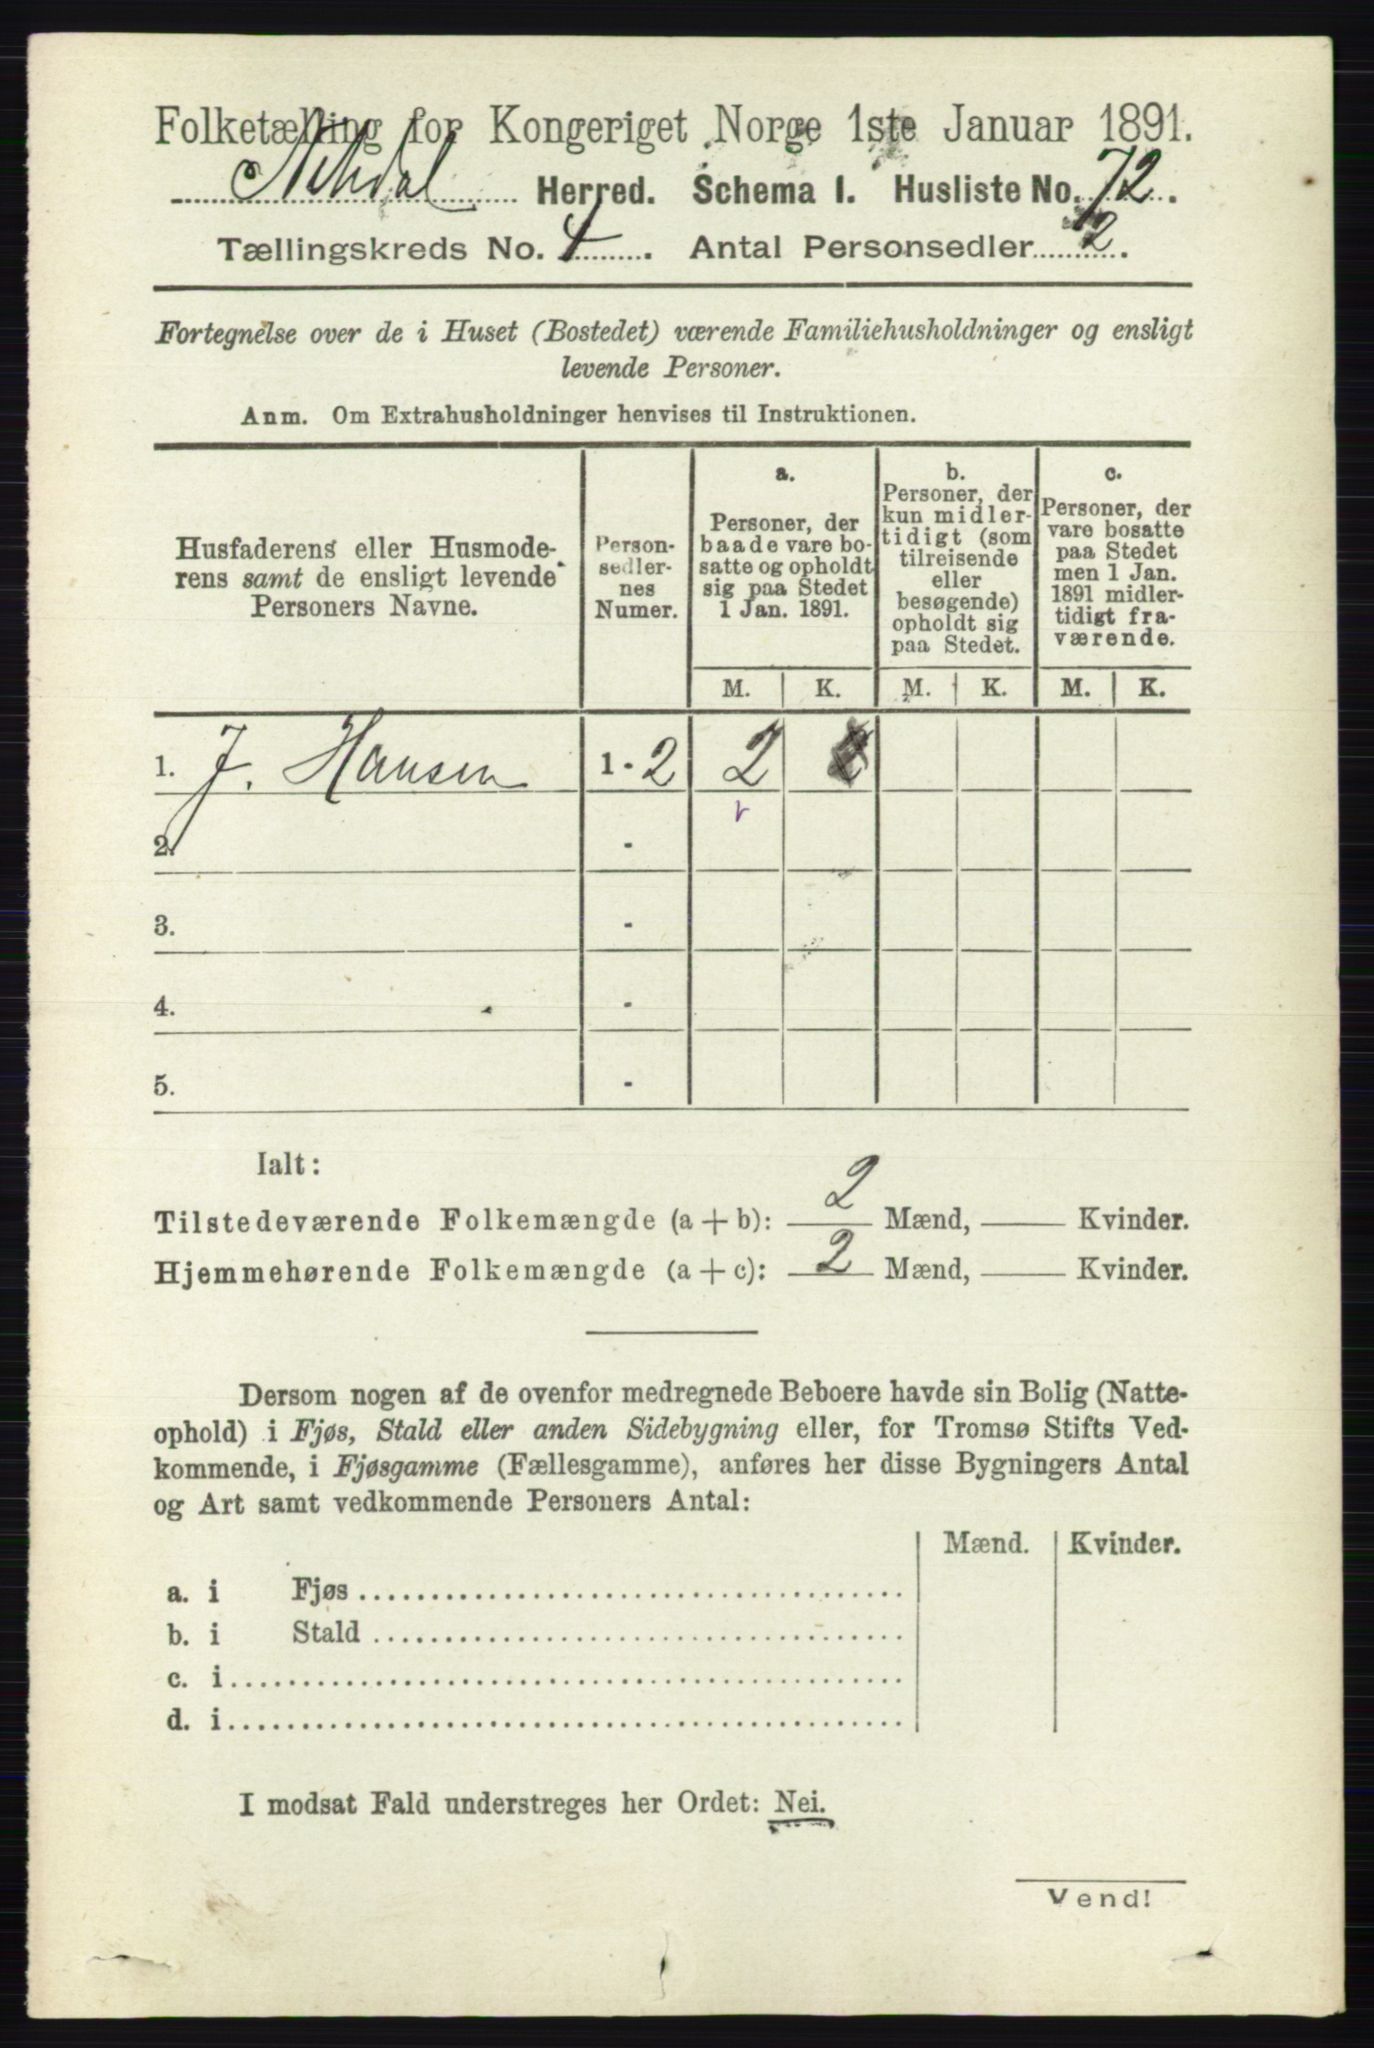 Folketælling for Kongeriget Norge 1ste Januar 1891.
Herred. Schema I. Husliste No. 72.
Tællingskreds No. 4. Antal Personsedler 2.
Fortegnelse over de i Huset (Bostedet) værende Familiehusholdninger og ensligt
levende Personer.
Anm. Om Extrahusholdninger henvises til Instruktionen.
Husfaderens eller Husmode-
rens samt de ensligt levende
Personers Navne.
Person-
sedler-
nes
Numer.
a.
Personer, der
baade vare bo-
satte og opholdt
sig paa Stedet
1 Jan. 1891.
b.
Personer, der
kun midler-
tidigt (som
tilreisende
eller
besøgende)
opholdt sig
paa Stedet.
c.
Personer, der
vare bosatte
paa Stedet
men 1 Jan.
1891 midler-
tidigt fra-
værende.
M. K. M. K. M. K.
1. J. Hansen 1 - 2 2
2. -
3. -
4. -
5. -
Ialt:
Tilstedeværende Folkemængde (a + b): 2 Mænd, Kvinder.
Hjemmehørende Folkemængde (a + c): 2 Mænd, Kvinder.
Dersom nogen af de ovenfor medregnede Beboere havde sin Bolig (Natte-
ophold) i Fjøs, Stald eller anden Sidebygning eller, for Tromsø Stifts Ved-
kommende, i Fjøsgamme (Fællesgamme), anføres her disse Bygningers Antal
og Art samt vedkommende Personers Antal:
Mænd. Kvinder.
a. i Fjøs
b. i Stald
c. i
d. i
I modsat Fald understreges her Ordet: Nei.
Vend!